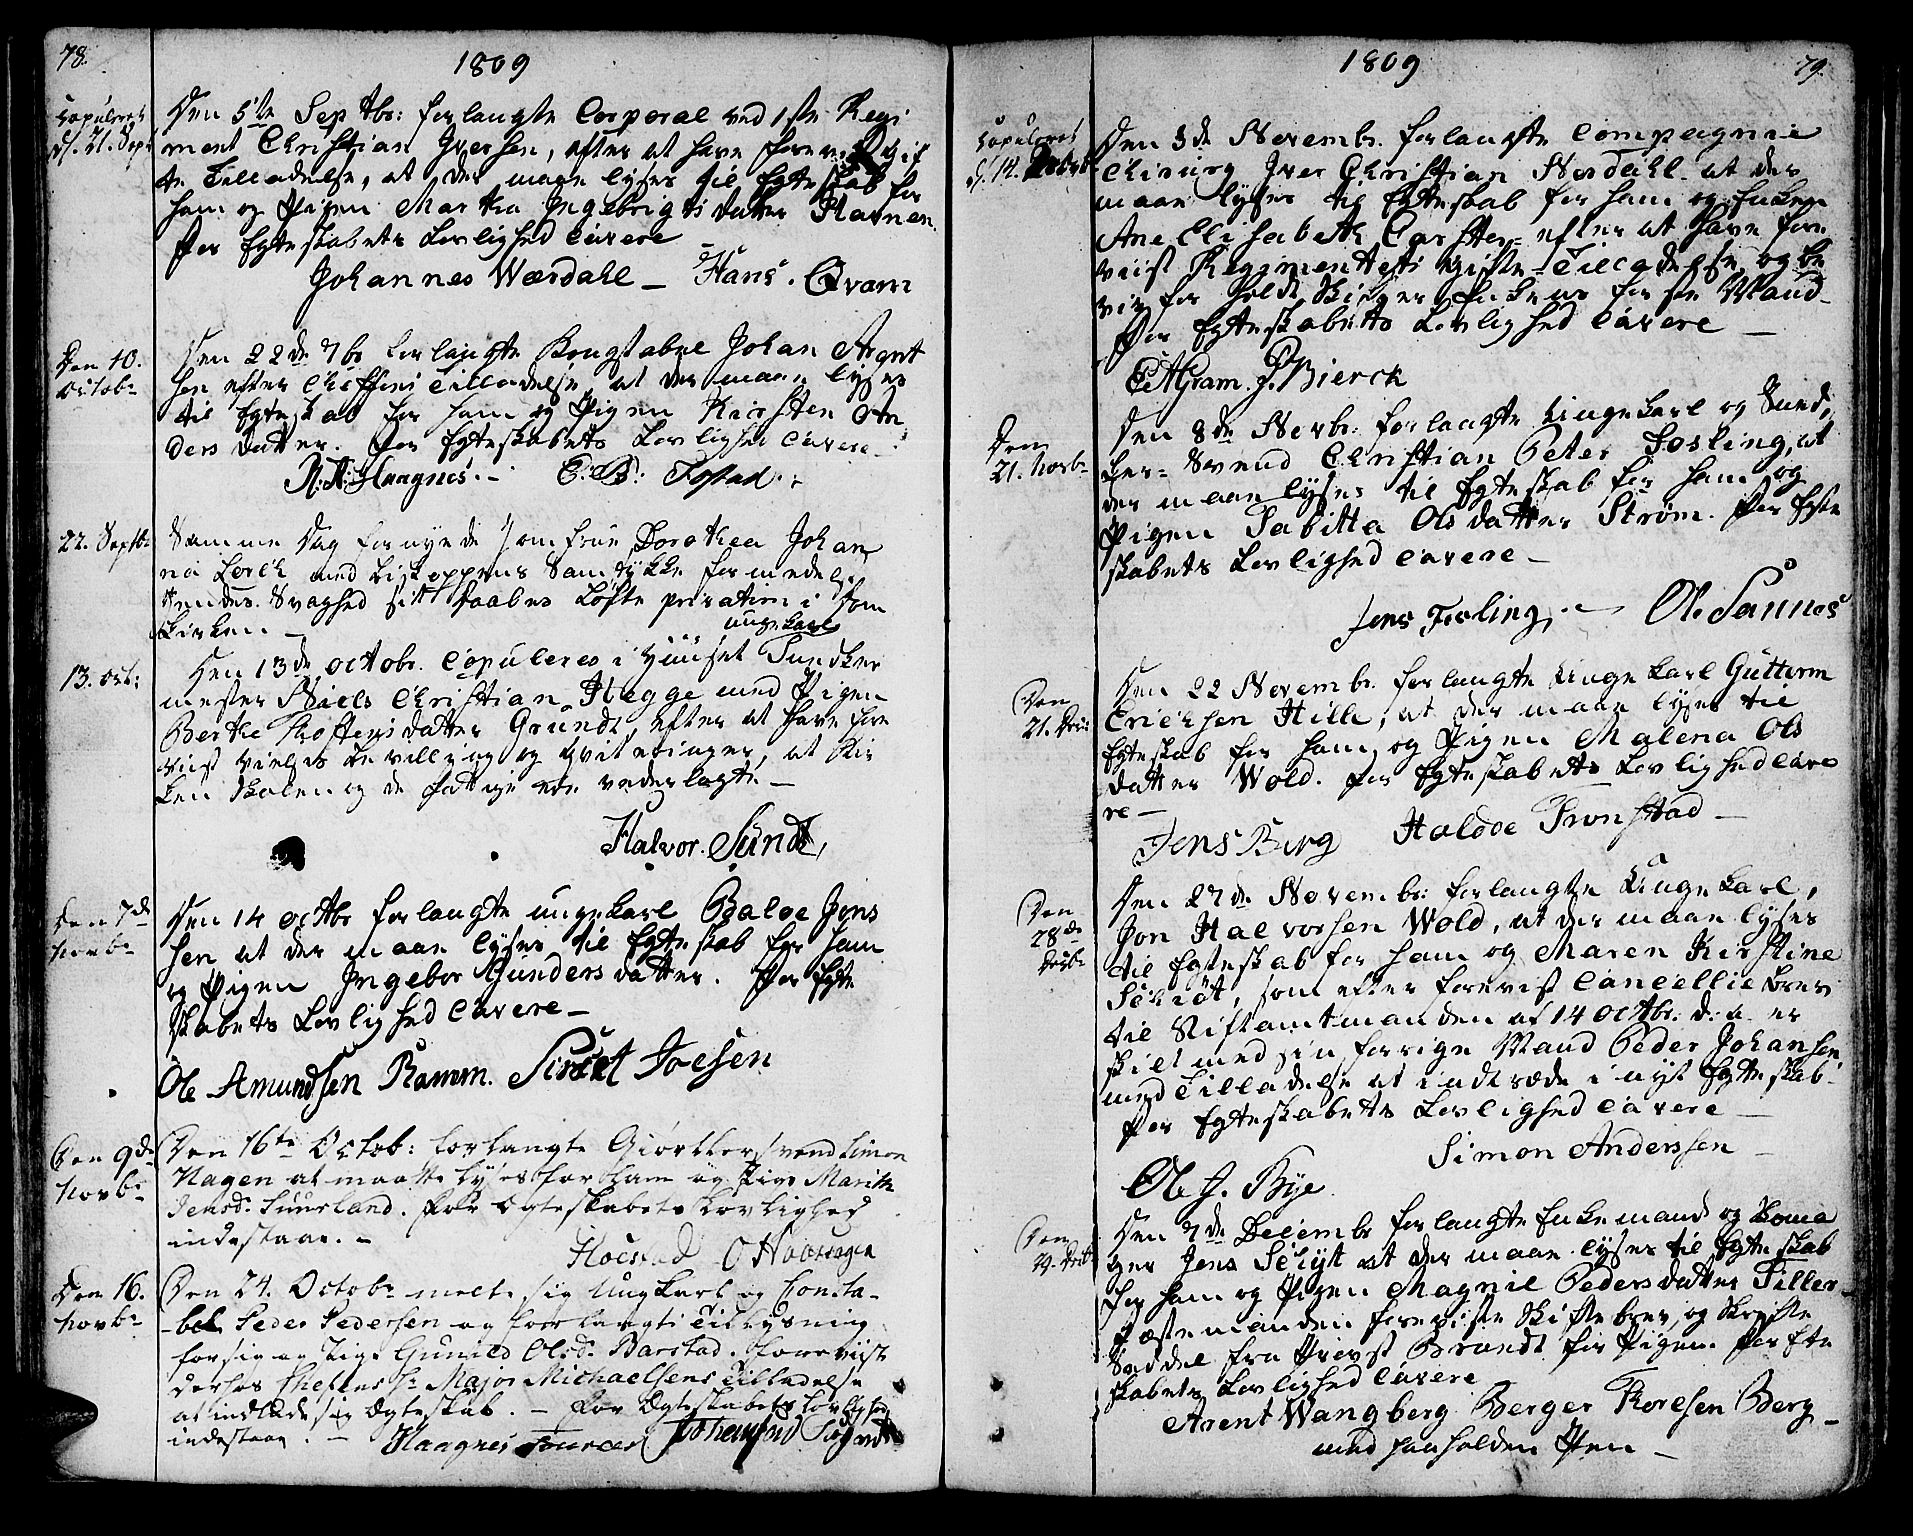 78.
1809
Copuleret
d. 21. Sept
Den 5te Septbr: forlangte Corporal ved 1ste Regi
ment Christian Iversen, efter at have foreviist Gif
te Tilladelse, at der maae lyses til Egteskab for
ham og Pigen Martha Ingebrigtsdatter Stavnen
For Egteskabets Lovlighed Cavere
Johannes Wærdahl – Hans Qvam
Den 10.
Octobr
Den 22de 7br forlangte Kongstabel Johan Arent
sen efter Cheffens Tilladelse, at der maae lyses
til Egteskab for ham og Pigen Kirsten An
ders datter. For Egteskabets Lovlighed Cavere
R. A: Haagnes. – C. B: Fostad.
22. Septbr
Samme Dag fornyede Jomfrue Dorothea Johan
na Lorck med Biskoppens Samtykke formedelst
hendes Svaghed sit Daabes Løfte privatim i Dom
kirken –
13. oct:
ungekarl
Den 13de, octobr. Copuleres i Huuset Tundker
mester Niels Christian Hegge med Pigen
Berthe Thoftensdatter Grundt, efter at have fore
viist Vielses Bevilling og Qviteringer, at Kir
ken Skolen og de fattige ere vederlagte –
Halvor Sundt,
Den 7de
Novbr
Den 14 octbr forlangte ungekarl Baloe Jens
sen at der maae lyses til Egteskab for ham
og Pigen Ingebor Gundersdatter. For Egte
skabets Lovlighed Cavere –
Ole Amundsen Ramm. Sivert Joesen
Den 9de
Novbr
Den 16te Octob: forlangte Giørtlersvend Simon
Hagen at maatte lyses for ham og Pige Marith
Jensdr. Suurland. For Ægteskabets Lovlighed
indestaae. –
Hoestad O Halvorsen
Den 16.
Novbr
Den 24. Octobr meldte sig Ungkarl og Consta-
-bel Peder Pedersen og forlangte Tillysning
for sig og Pige Gunild Olsdr. Barstad. Foreviist
derhos Chefens Hr. Major Michaelsens Tilladelse
at indlade sig Ægteskab. – For Ægteskabets Lovlighed
indestaae. –
Haagnes
1809
79.
Copuleret
d. 14.
Den 3de Novembr. forlangte Compagnie
Chirurg Iver Christian Nordahl at der
maae lyses til Egteskab for ham og Enken
Ane Elisabeth Carsten efter at have fore
viist Regimentets Gifte-Tilladelse, og be
viis for holdt Skifte efter Enkens første Mand
For Egteskabets Lovlighed Cavere –
C. A Gram. J. Bierck
Den
21. Novbr
Den 8de Novbr: forlangte Ungekarl og Sned,
ker-Svend Christian Peter Fosling, at
der maae lyses til Egteskab for ham og
Pigen Tabitta Olsdatter Strøm. For Egte
skabets Lovlighed Cavere –
Jens Fosling, – Ole Sannes
Den
21. Decbr
Den 22 Novembr. forlangte Ungekarl Guttorm
Erichsen Hille, at der maae lyses til
Egteskab for ham og Pigen Malena Ols
datter Wold. For Egteskabets Lovlighed Cave
re –
Jens Berg Haldoe Tronstad –
Den
28de
Decbr
Den 27de Novembr: forlangte Ungekarl,
Jon Halvorsen Wold, at der maae lyses
til Egteskab for ham og Maren Kirstine
Schiøt, som efter forevist Cancellie Brev
til Stiftamtmanden af 14 octbr. d: a er
skilt med sin forrige Mand Peder Johansen
med Tilladelse at indtræde i nyt Egteskab.
For Egteskabets Lovlighed Cavere –
Simon Anderssen –
Ole J. Bye
Den
29. Decbr
Den 7de Decembr forlangte Enkemand og
Jens Schyt at der maae lyses til Egteskab
for ham og Pigen Magnil Pedersdatter Tiller
Fæstemanden foreviste Skiftebrev, og Skrifte
Seddel fra Provst Brandt for Pigen. For Egte
skabets Lovlighed Cavere
Arent Wangberg Berger Thoresen Berg –
med paaholden Pen –